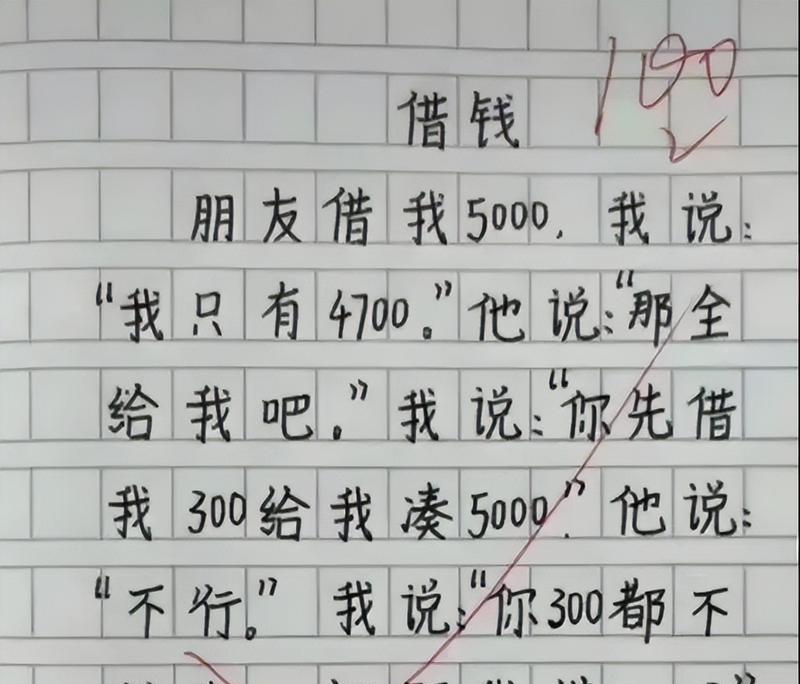 100
借钱
朋友借我5000，我说：
“我只有4700。”他说：“那全
给我吧。”我说：“你先借
我300给我凑5000”他说：
“不行。”我说：“你300都不